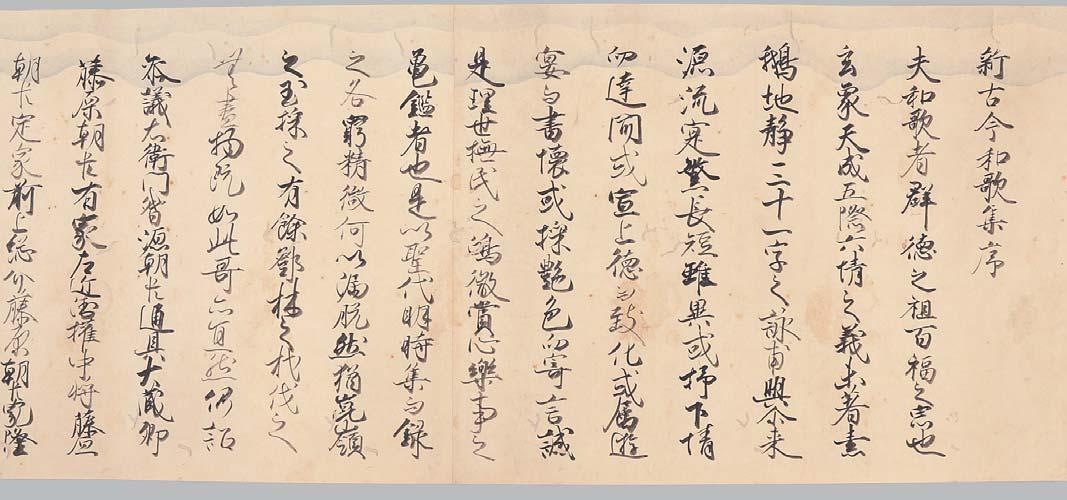 新古今和歌集序
夫和歌者群徳之祖百福之宗也
玄象天成五際六情之義未著素
鵝地静三十一字之詠甫興尒来
源流寔繁長短雖異或抒下情
而達聞或宣上徳而致化或属遊
宴而書懐或採艶色而寄言誠
是理世撫民之鴻徽賞心樂事之
亀鑑者也是以聖代明時集而録
之各窮精微何以漏脱然猶崑嶺
之玉採之有餘鄧林之材伐之
無尽物既如此哥亦宜然仍詔
参議右衛門督源朝臣通具大蔵卿
藤原朝臣有家左近衛権中将藤原
朝臣定家前上総介藤原朝臣家隆